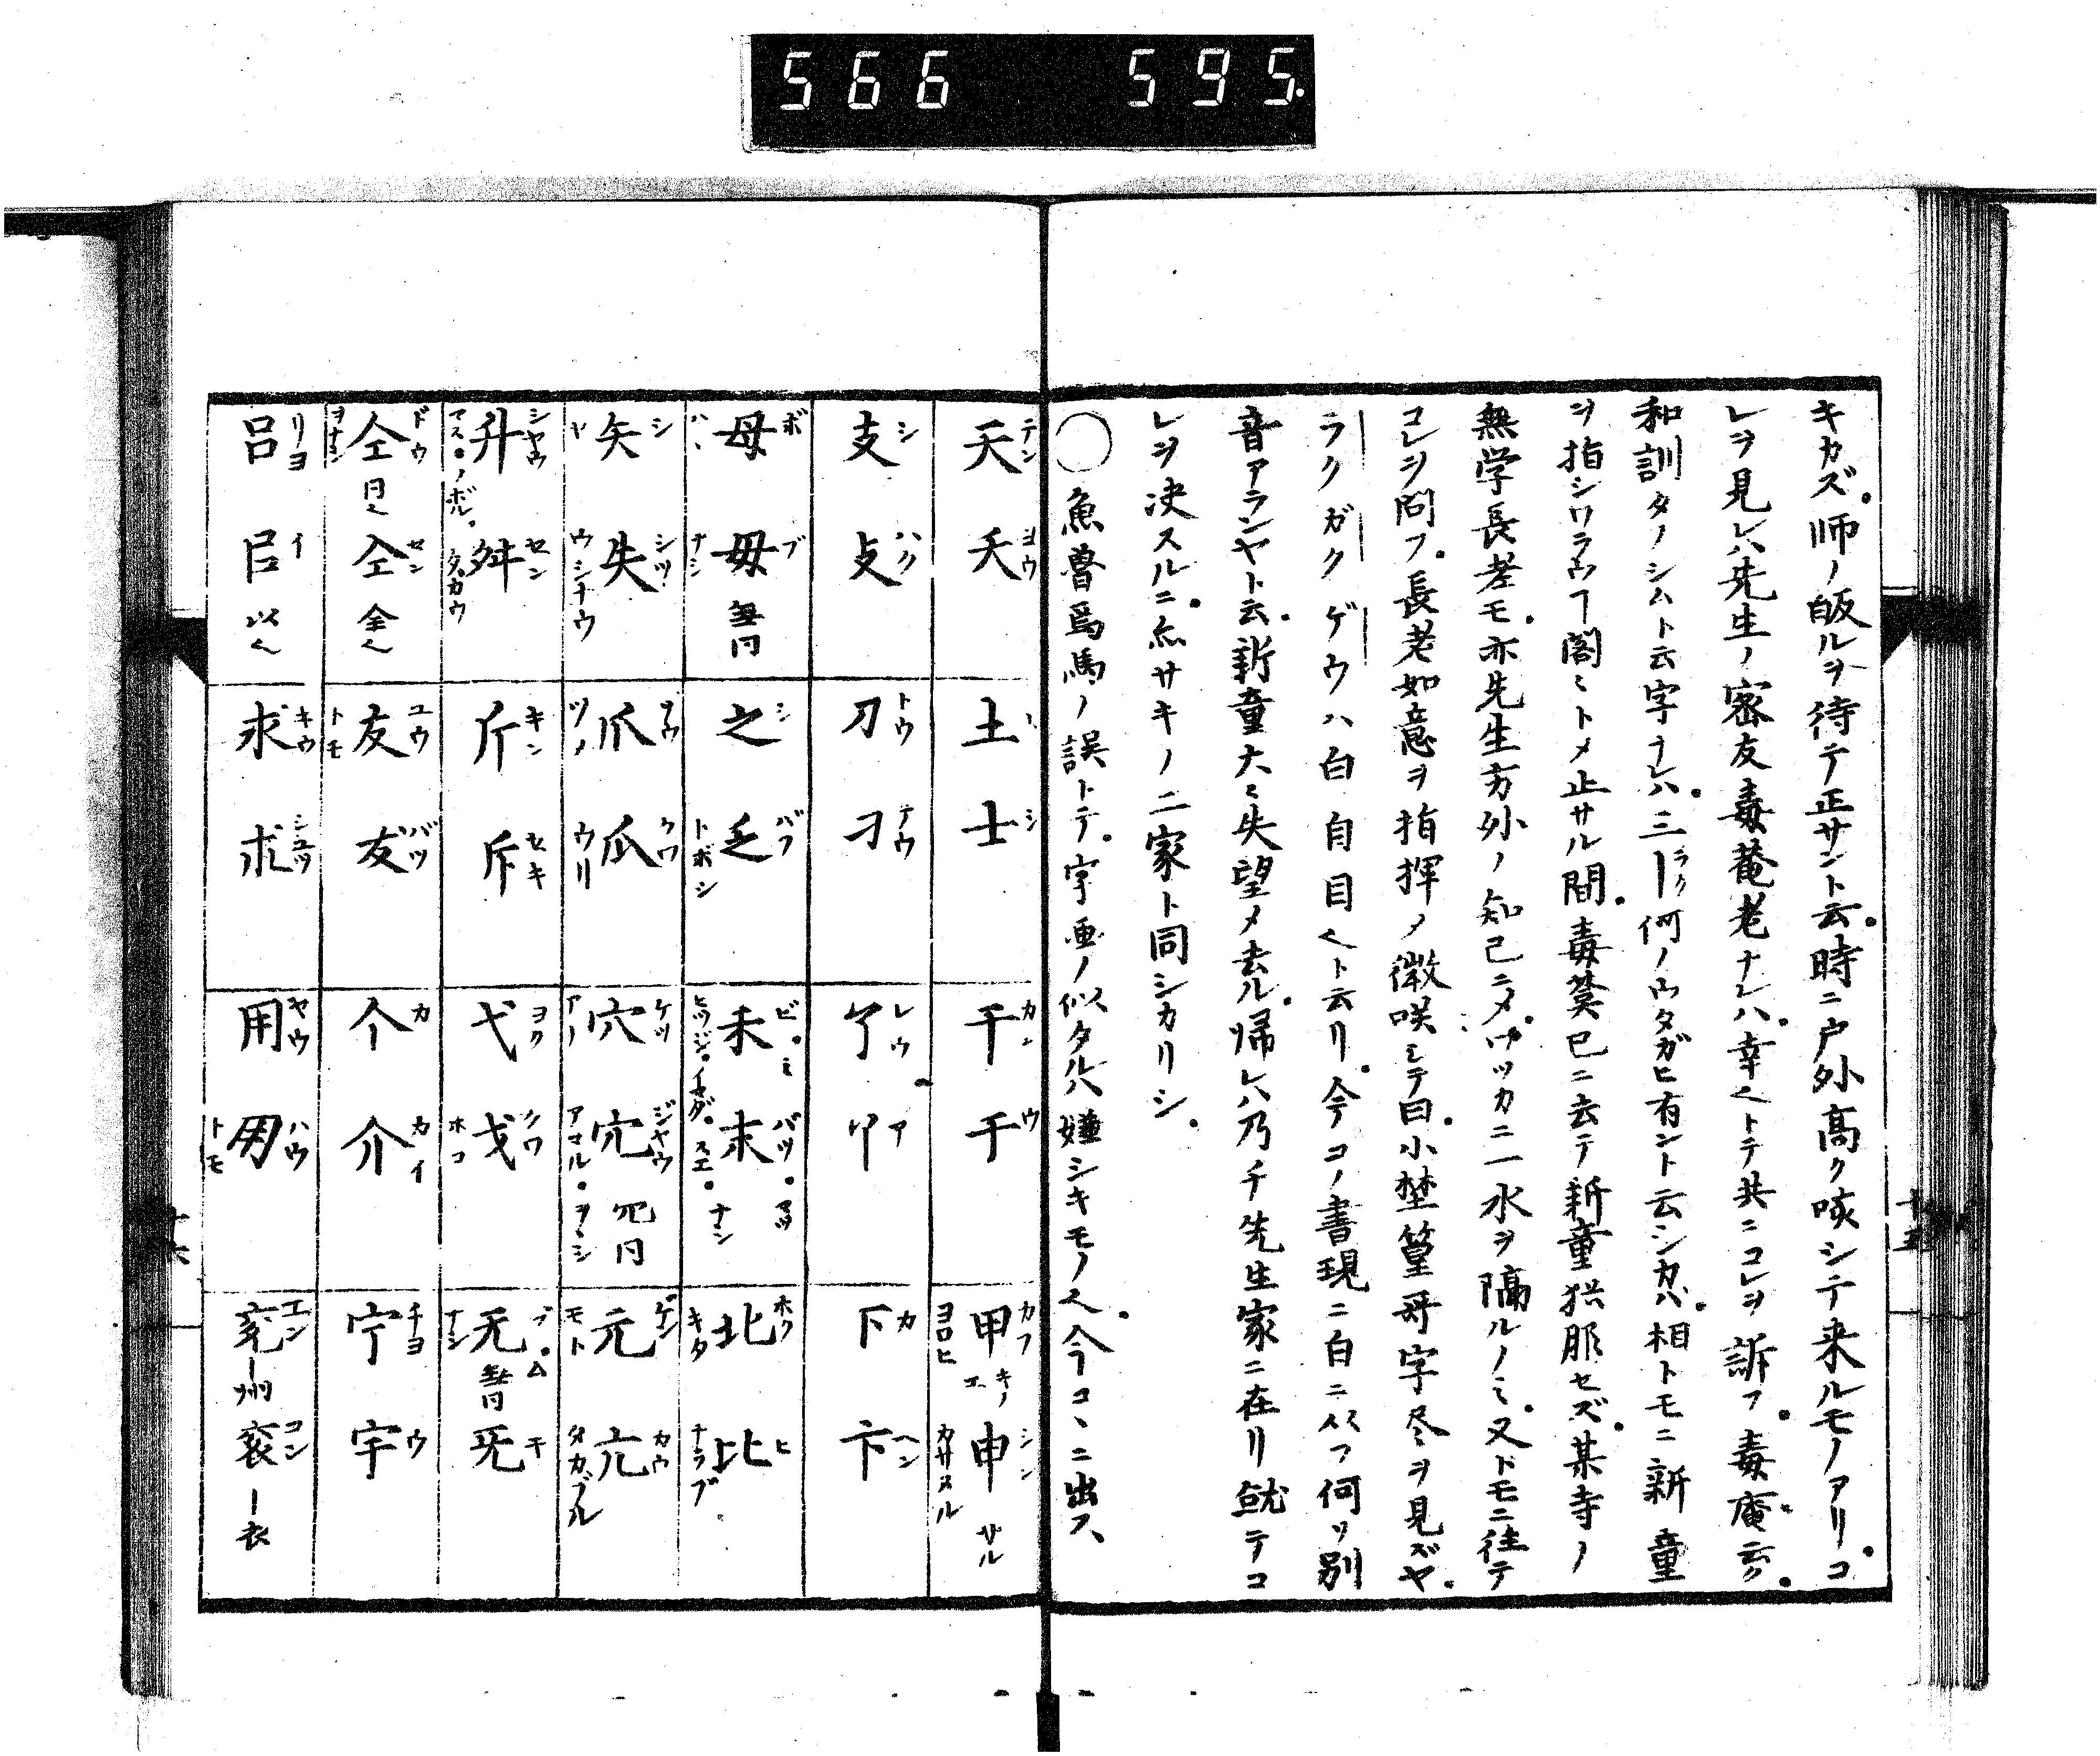 566 595.
キカズ。师ノ皈ルヲ待テ正サント云。時ニ戸外高ク咳シテ来ルモノアリ。コ
レヲ見レハ先生ノ密友毒菴老ナレハ。幸也トテ共ニコレヲ訴フ。毒庵云ク。
和訓タノシムト云字ナレハ。三ーラク何ノウタガヒ有ント云シカバ。相トモニ新童
ヲ指シワラウヿ閣々トメ止サル間。毒菴已ニ云テ新童猶服セズ。某寺ノ
無学長老モ。亦先生方外ノ知己ニメ。ワツカニ一水ヲ隔ルノミ。又ドモニ徃テ
コレヲ問フ。長老如意ヲ指揮メ微咲シテ曰。小埜篁哥字尽ヲ見ズヤ。
ラクガクゲウハ白自目也ト云リ。今コノ書現ニ白ニ从フ何ソ別
音アランヤト云。新童大ニ失望メ去ル。帰レハ乃チ先生家ニ在リ就テコ
レヲ决スルニ。亦サキノ二家ト同シカリシ。
○魚魯焉馬ノ誤トテ。字画ノ似タルハ嫌シキモノ也。今コヽニ出ス、
十五
天テン 夭ヨウ 土ト 士シ 干カン 于ウ 甲カフ ヨロヒ キノエ 申シン カサヌル サル
支シ 攴ハク 刀トウ 刁テウ 卩 下カ 卞ヘン
母ボ ハヽ 毋ブ ナシ 無同 之シ 乏バフ トボシ 未ビ。ミ ヒツジ。イマダ。 末バツ。マツ スエ。ナシ 北ホク キタ 比ヒ ナラブ
矢シ ヤ 失シツ ウシナウ 爪サウ ツメ 瓜クワ ウリ 穴ケツ アナ 宂ジヤウ アマル。 冗同 元ゲン モト 亢カウ タカブル
升シヤウ マス。ノボル。 舛セン タガウ 斤キン 斥セキ 弋ヨク 戈クワ ホコ 无ブ。ム ナシ 無同 旡キ
仝ドウ ヲナシ 同也 仝セン 全也 友ユウ トモ 犮バツ 个カ 介カイ 宁チヨ 宇ウ
呂リヨ 㠯イ 以也 求キウ 朮シユツ 用ヤウ トモ 兖エン ー州 衮コン ー衣
十六